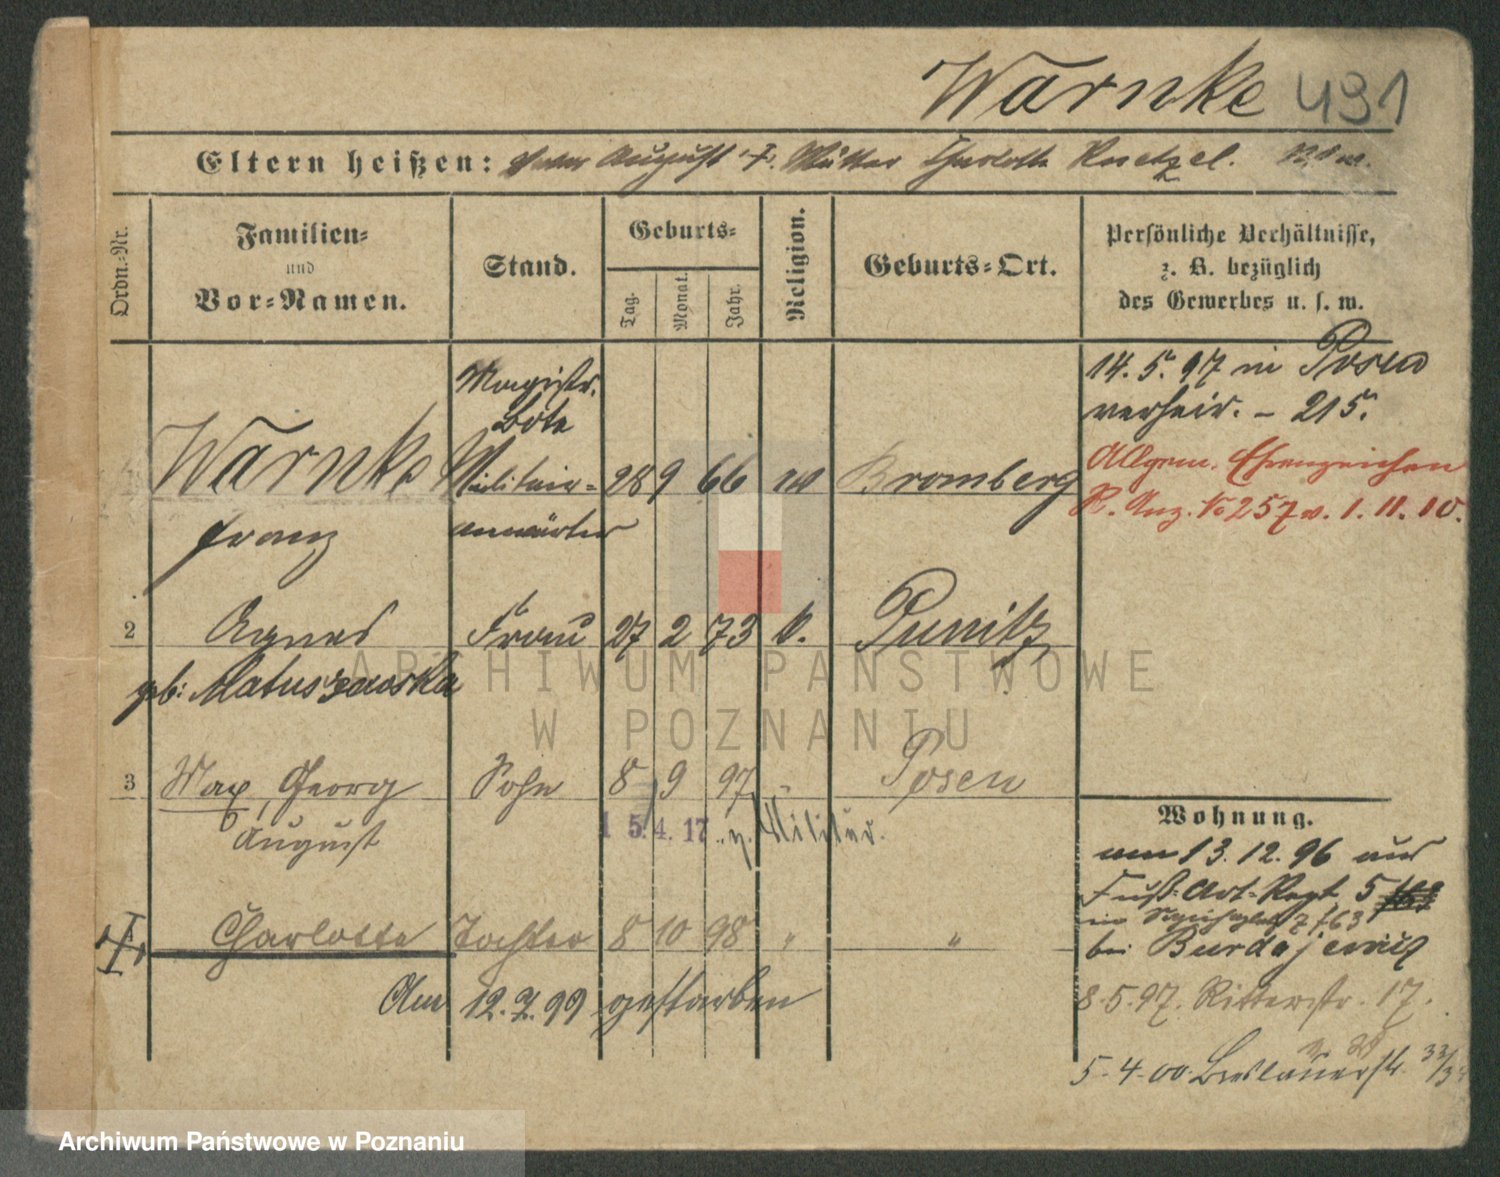 Warnke 491
Eltern heißen: Vater August †. Mutter Charlotte
Ordn.-Nr.
Familien- und Vor-Namen.
Stand.
Geburts-
Tag. Monat. Jahr.
Religion.
Geburts-Ort.
Persönliche Verhältnisse,
z. B. bezüglich
des Gewerbes u. s. w.
Magistr.
Bote
Warnke Militair- 28 9 66 ev Bromberg
Franz anwärter
14. 5. 97 in Posen
verheir. - 215.
Allgem. Ehrenzeichen
R. Anz. No 257 v. 1. 11. 10.
2 Agnes Frau 27 2 73 k. Punitz
geb: Matuszewska
3 Max, Georg Sohn 8 9 97 " Posen
August
15.4.17 z. Militär.
4 Charlotte Tochter 8 10 98 " "
Am 12. 7. 99 gestorben
Wohnung.
vom 13. 12. 96 aus
Fuß-Art-Regt 5
bei
8. 5. 97. Ritterstr. 17.
5-4-00 Breslauerstr. 33/34
ARCHIWUM PAŃSTWOWE
W POZNANIU
Archiwum Państwowe w Poznaniu